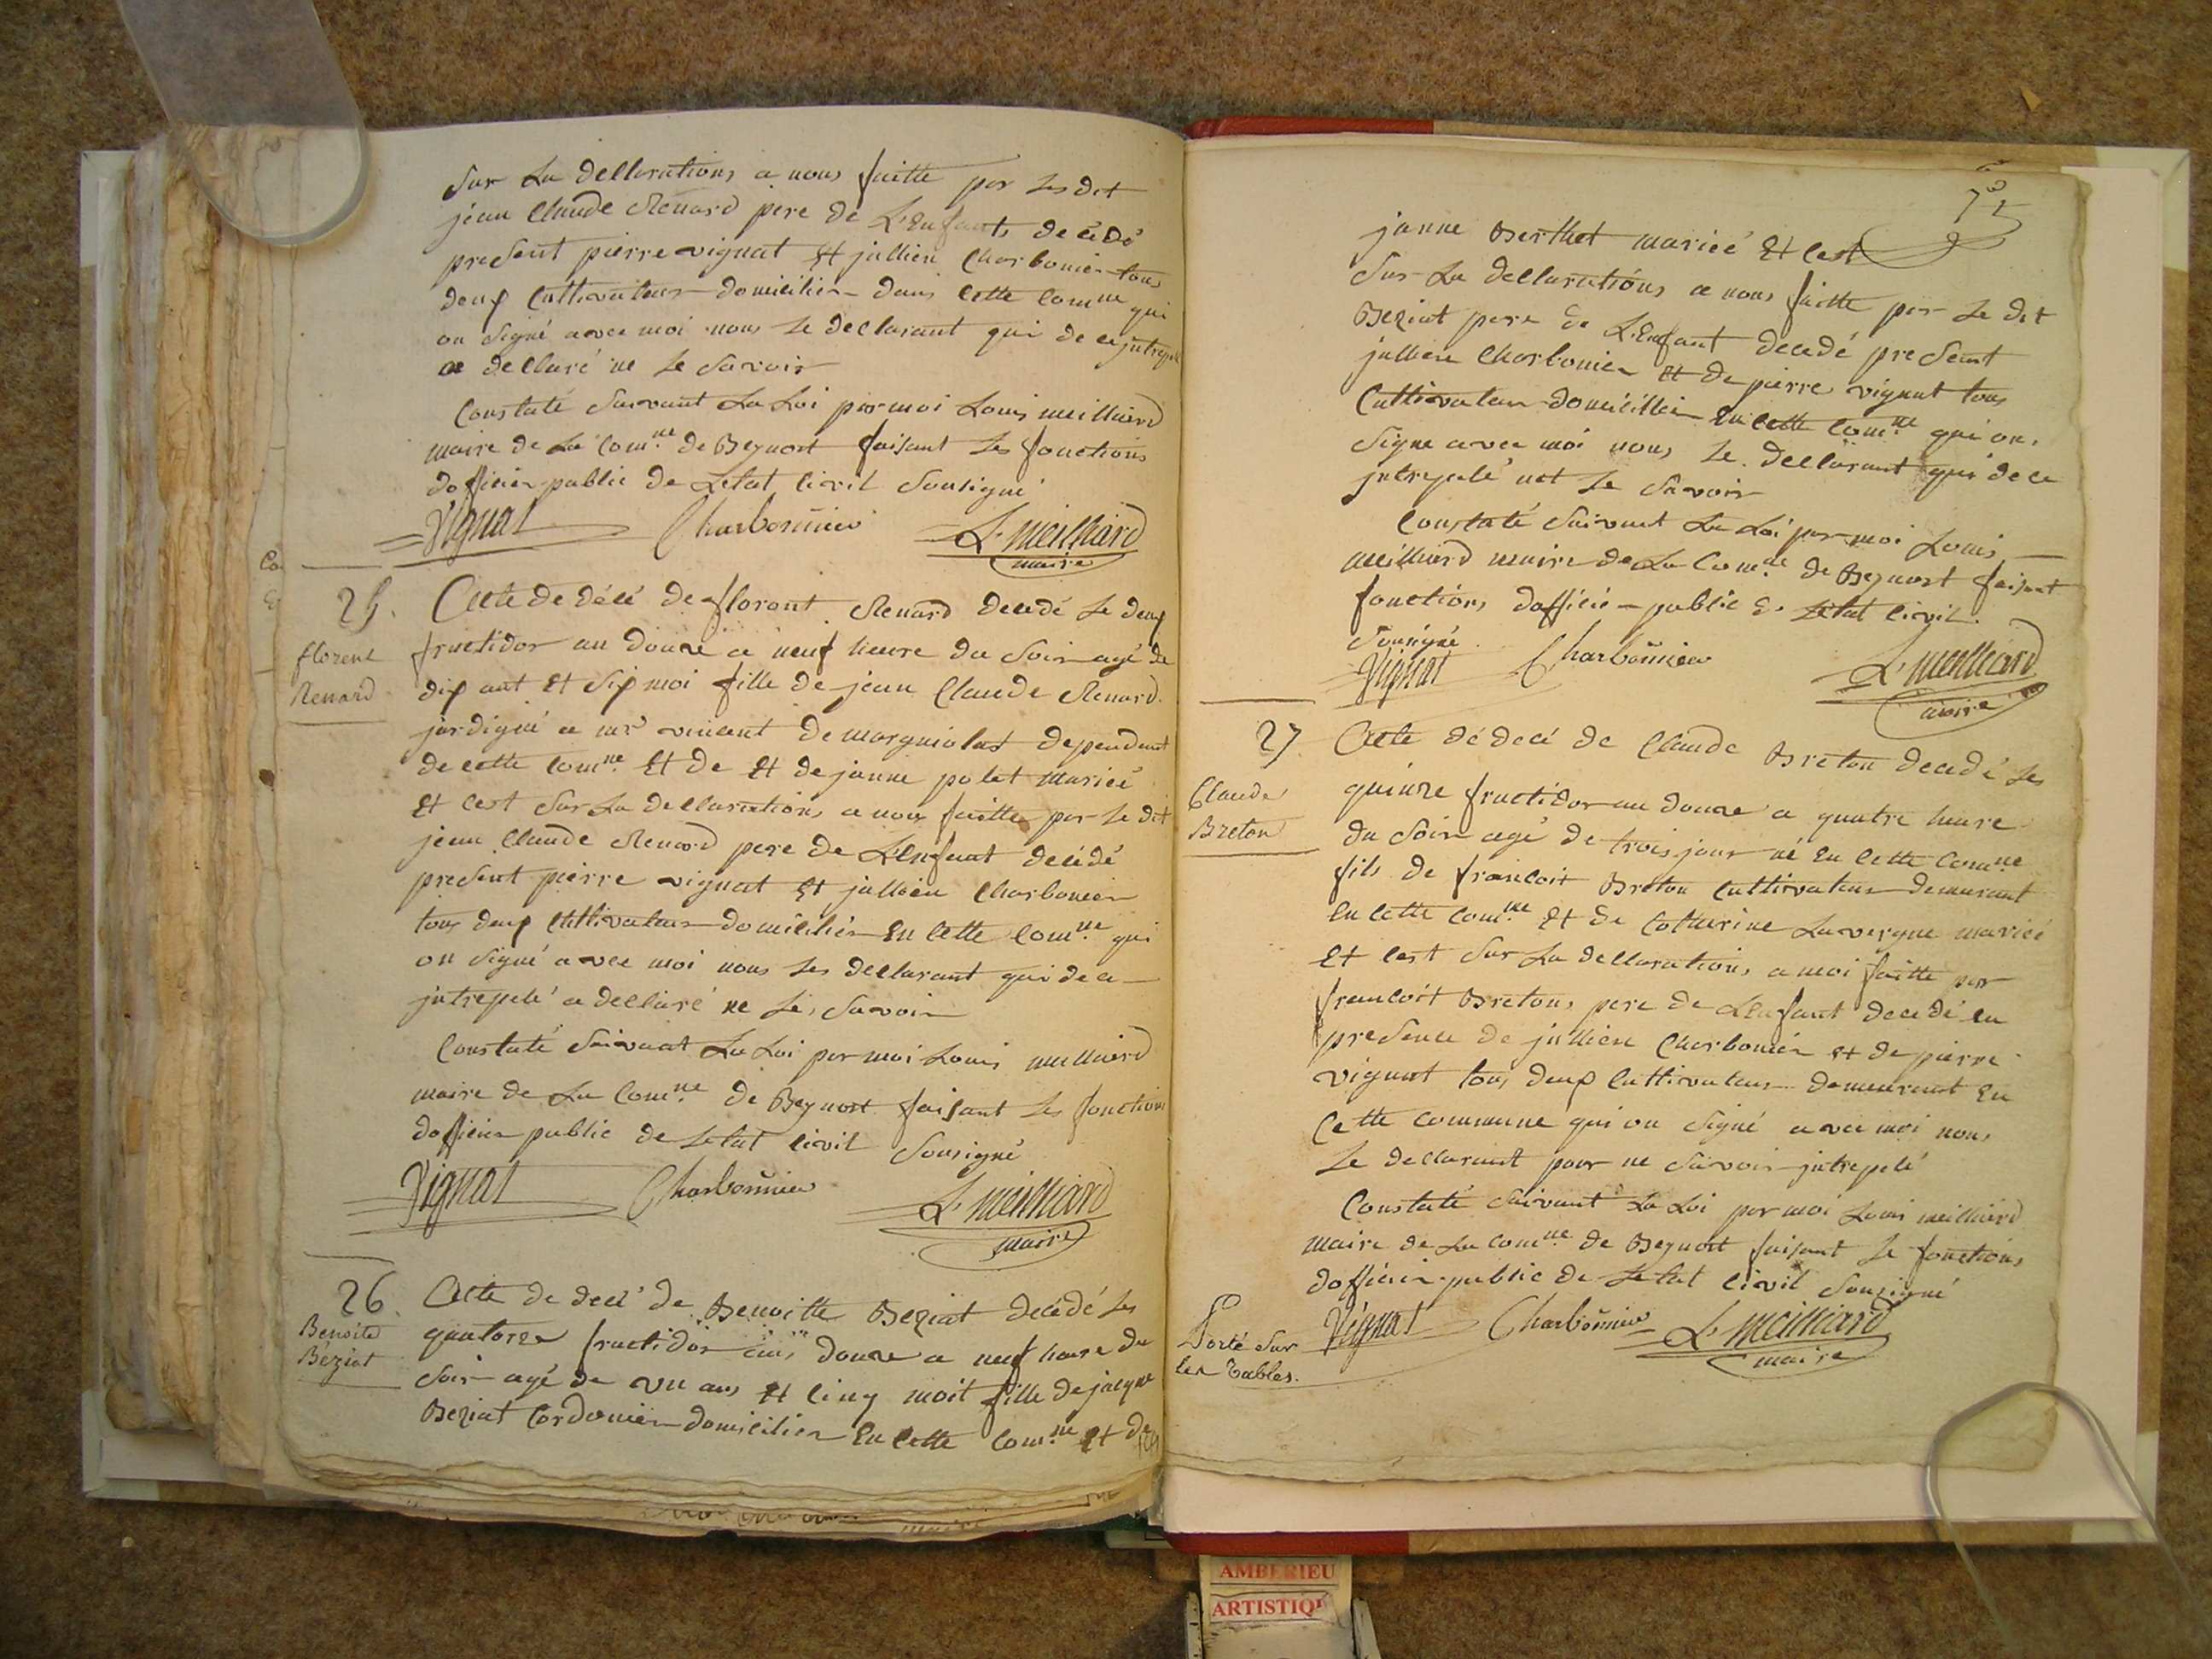 Sur La dellarations a nous faitte par Les dit
jean Claude Renard pere de L'Enfants decédé
present pierre vignat Et jullien Charbonier tous
deux Cultivateur domicilier dans Cette Comne qui
on Signé avec moi nons Le declarant qui de ce jntrepelé
a declaré ne Le Savoir
Constaté Suivant La Loi par moi Louis meilliard
maire de La Comne de Beynost faisant Les fonctions
dofficier public de Letat Civil Sousigné
Vignat Charbonnier L. Meilliard
maire
25. Acte de décé de florent Renard decedé Le deux
florent
Renard
fructidor an douze a neuf heure du Soir agé de
dix ant Et Six moi fille de jean Claude Renard
jardigné a mr vincent de margniolas dependant
de cette Comne Et de Et de janne polet mariée
Et Cest Sur La dellaration, a nous faitte par Le dit
jean Claude Renard pere de L'Enfant decédé
present pierre vignat Et jullien Charbonier
tous deux Cultivateur domicilier En Cette Comne qui
on Signé avec moi nons Les declarant qui de ce
jntrepelé a declaré ne Les Savoir
Constaté Suivant La Loi par moi Louis meilliard
maire de La Comne de Beynost faisant Les fonctions
dofficier public de Letat Civil Sousigné
Vignat Charbonnier L. Meilliard
maire
26. Acte de decé de Benoitte Beziat decédé Les
Benoite
Béziat
quatorze fructidor ans douze a neuf heure du
Soir agé de vn ans Et Cinq moit fille de jacque
Beziat Cordonier domicilier En Cette Comne Et de
janne Berthet mariée Et Cest
Sur La dellarations a nous faitte par Le dit
Beziat pere de L'Enfant decedé present
jullien Charbonier Et de pierre vignat tous
Cultivateur domicillier En Cette Comne qui on
Signe avec moi nons Le dellarant qui de ce
jntrepelé not Le Savoir
Constaté Suivant La Loi par moi Louis
meilliard maire de La Comne de Beynost faisant
fonctions dofficié public de Letat Civil.
Sousigné
Vignat Charbonnier L. Meilliard
maire
27 Acte dé decé de Claude Breton decedé Les
Claude
Breton
quinze fructidor an douze a quatre heure
du Soir agé de trois jour né En Cette Comne
fils de francoit Breton Cultivateur demurant
En Cette Comne Et de Catherine Lavergne mariée
Et Cest Sur La dellarations a moi faitte par
francoit Bretons pere de L'Enfant decedé en
presence de jullien Charbonier et de pierre
vignat tous deux Cultivateur demeurant En
Cette Commune qui on Signé avec moi nons
Le dellarant pour ne Savoir jntrepelé
Constaté Suivant La Loi par moi Louis meilliard
maire de La Comne de Beynost faisant Le fonctions
dofficier public de Letat Civil Sousigné
Vignat Charbonnier L. Meilliard
maire
Porté Sur
Les Tables.
AMBERIEU
ARTISTIQ